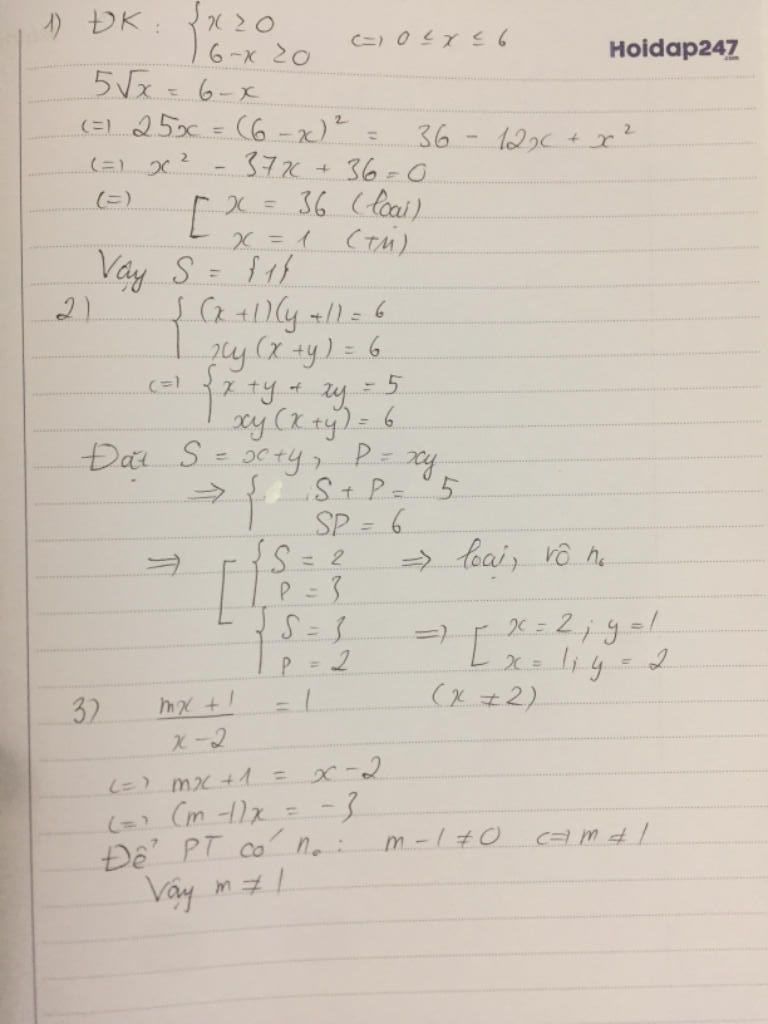 1) ĐK: { x ≥ 0
6-x ≥ 0 <=> 0 ≤ x ≤ 6
Hoidap247
.com
5√x = 6-x
<=> 25x = (6-x)² = 36 - 12x + x²
<=> x² - 37x + 36 = 0
<=> [ x = 36 (loại)
x = 1 (TM)
Vậy S = {1}
2) { (x+1)(y+1) = 6
xy(x+y) = 6
<=> { x+y + xy = 5
xy(x+y) = 6
Đặt S = x+y, P = xy
=> { S + P = 5
SP = 6
=> [ { S = 2 => loại, vô n₀
P = 3
{ S = 3 => [ x = 2; y = 1
P = 2 x = 1; y = 2
3) (mx+1)/(x-2) = 1 (x ≠ 2)
<=> mx+1 = x-2
<=> (m-1)x = -3
Để PT có n₀: m-1 ≠ 0 <=> m ≠ 1
Vậy m ≠ 1